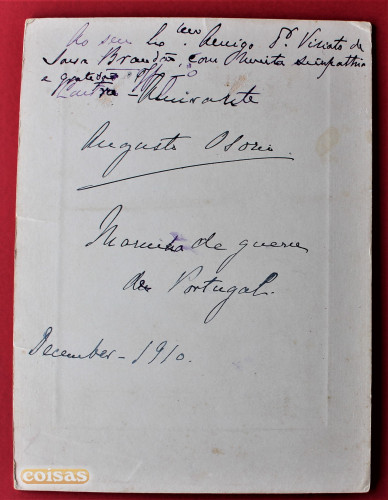 Ao seu Amigo Dr. Viriato de
Sousa Brandão com Muita simpathia
e gratidão
Contra-Almirante
Augusto Osorio
Marinha de guerra
de Portugal.
December - 1910.
coisas